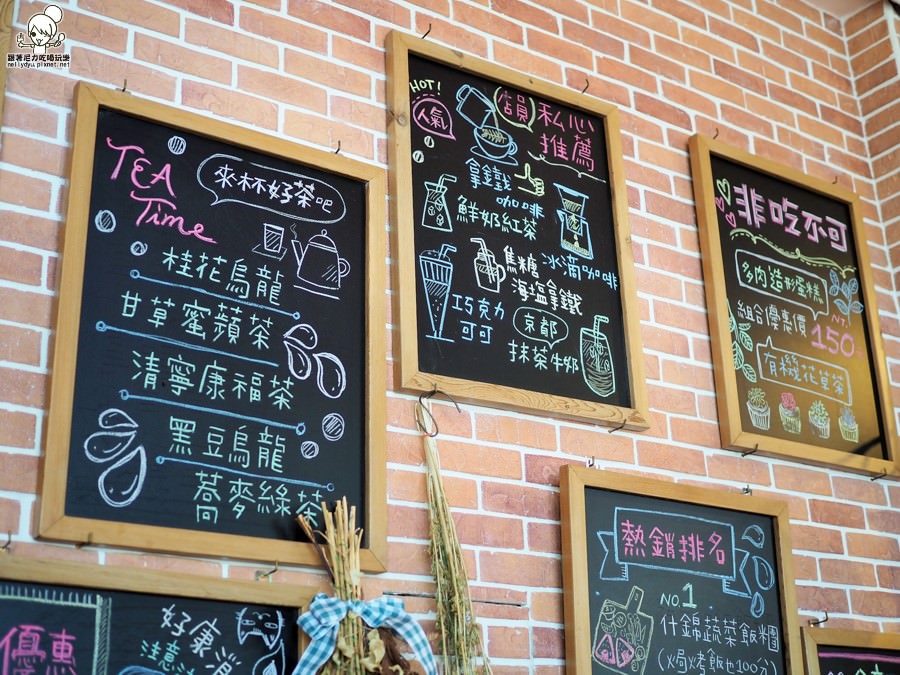 跟著尼力吃喝玩樂
nellydyu.pixnet.net
TEA
Time
來杯好茶吧
桂花烏龍
甘草蜜蘋茶
清寧康福茶
黑豆烏龍
蕎麥綠茶
HOT!
人氣
店員私心
推薦
拿鐵
咖啡
鮮奶紅茶
冰滴咖啡
焦糖
海鹽拿鐵
巧克力
可可
京都
抹茶牛奶
非吃不可
多肉造形蛋糕
組合優惠價
NT.
150
有機花草茶
熱銷排名
NO.1
什錦蔬菜飯糰
(焗烤飯也100分)
優惠
好康
注意